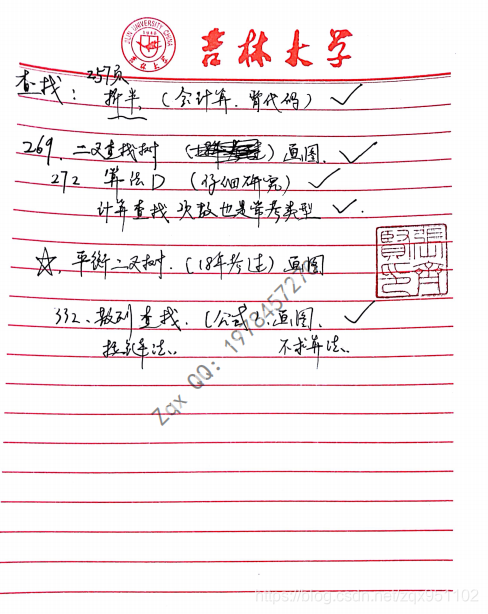 JILIN UNIVERSITY CHINA
吉林大学
257页
查找: 折半. (会计算. 背代码) ✓
269. 二叉查找树 ( ) 画图. ✓
272 算法D (仔细研究) ✓
计算查找次数也是常考类型 ✓.
☆. 平衡二叉树. (18年考过) 画图
332. 散列查找. (公式). 画图. ✓
拉链法.. 不求算法..
Zqx QQ: 1978457271
https://blog.csdn.net/zqx951102